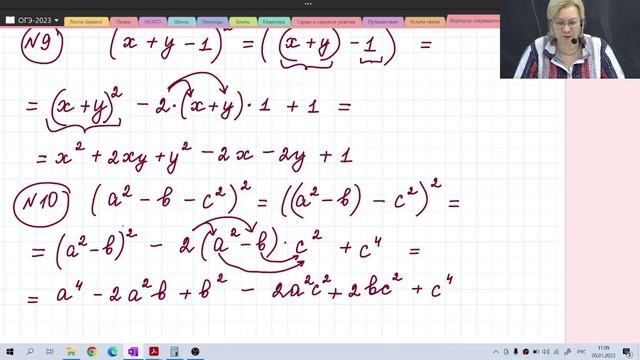 ОГЭ-2023
Листы бумаги Планы ОСАГО Шины Теплицы Зонты Квартира Сараи и садовые участки Путешествия Услуги связи Формулы сокращенн
№9 (x + y - 1)² = ((x + y) - 1) =
= (x + y)² - 2·(x + y)·1 + 1 =
= x² + 2xy + y² - 2x - 2y + 1
№10 (a² - b - c²)² = ((a² - b) - c²)² =
= (a² - b)² - 2(a² - b)·c² + c⁴ =
= a⁴ - 2a²b + b² - 2a²c² + 2bc² + c⁴
РУС
11:09
05.01.2023